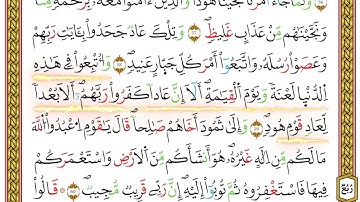 وَلَمَّا جَآءَ أَمْرُنَا نَجَّيْنَا هُودًا وَٱلَّذِينَ ءَامَنُوا۟ مَعَهُۥ بِرَحْمَةٍ مِّنَّا
وَنَجَّيْنَٰهُم مِّنْ عَذَابٍ غَلِيظٍ ۝٥٨ وَتِلْكَ عَادٌ جَحَدُوا۟ بِـَٔايَٰتِ رَبِّهِمْ
وَعَصَوْا۟ رُسُلَهُۥ وَٱتَّبَعُوٓا۟ أَمْرَ كُلِّ جَبَّارٍ عَنِيدٍ ۝٥٩ وَأُتْبِعُوا۟ فِى هَٰذِهِ
ٱلدُّنْيَا لَعْنَةً وَيَوْمَ ٱلْقِيَٰمَةِ أَلَآ إِنَّ عَادًا كَفَرُوا۟ رَبَّهُمْ أَلَا بُعْدًا
لِّعَادٍ قَوْمِ هُودٍ ۝٦٠ وَإِلَىٰ ثَمُودَ أَخَاهُمْ صَٰلِحًا قَالَ يَٰقَوْمِ ٱعْبُدُوا۟ ٱللَّهَ
مَا لَكُم مِّنْ إِلَٰهٍ غَيْرُهُۥ هُوَ أَنشَأَكُم مِّنَ ٱلْأَرْضِ وَٱسْتَعْمَرَكُمْ
فِيهَا فَٱسْتَغْفِرُوهُ ثُمَّ تُوبُوٓا۟ إِلَيْهِ إِنَّ رَبِّى قَرِيبٌ مُّجِيبٌ ۝٦١ قَالُوا۟